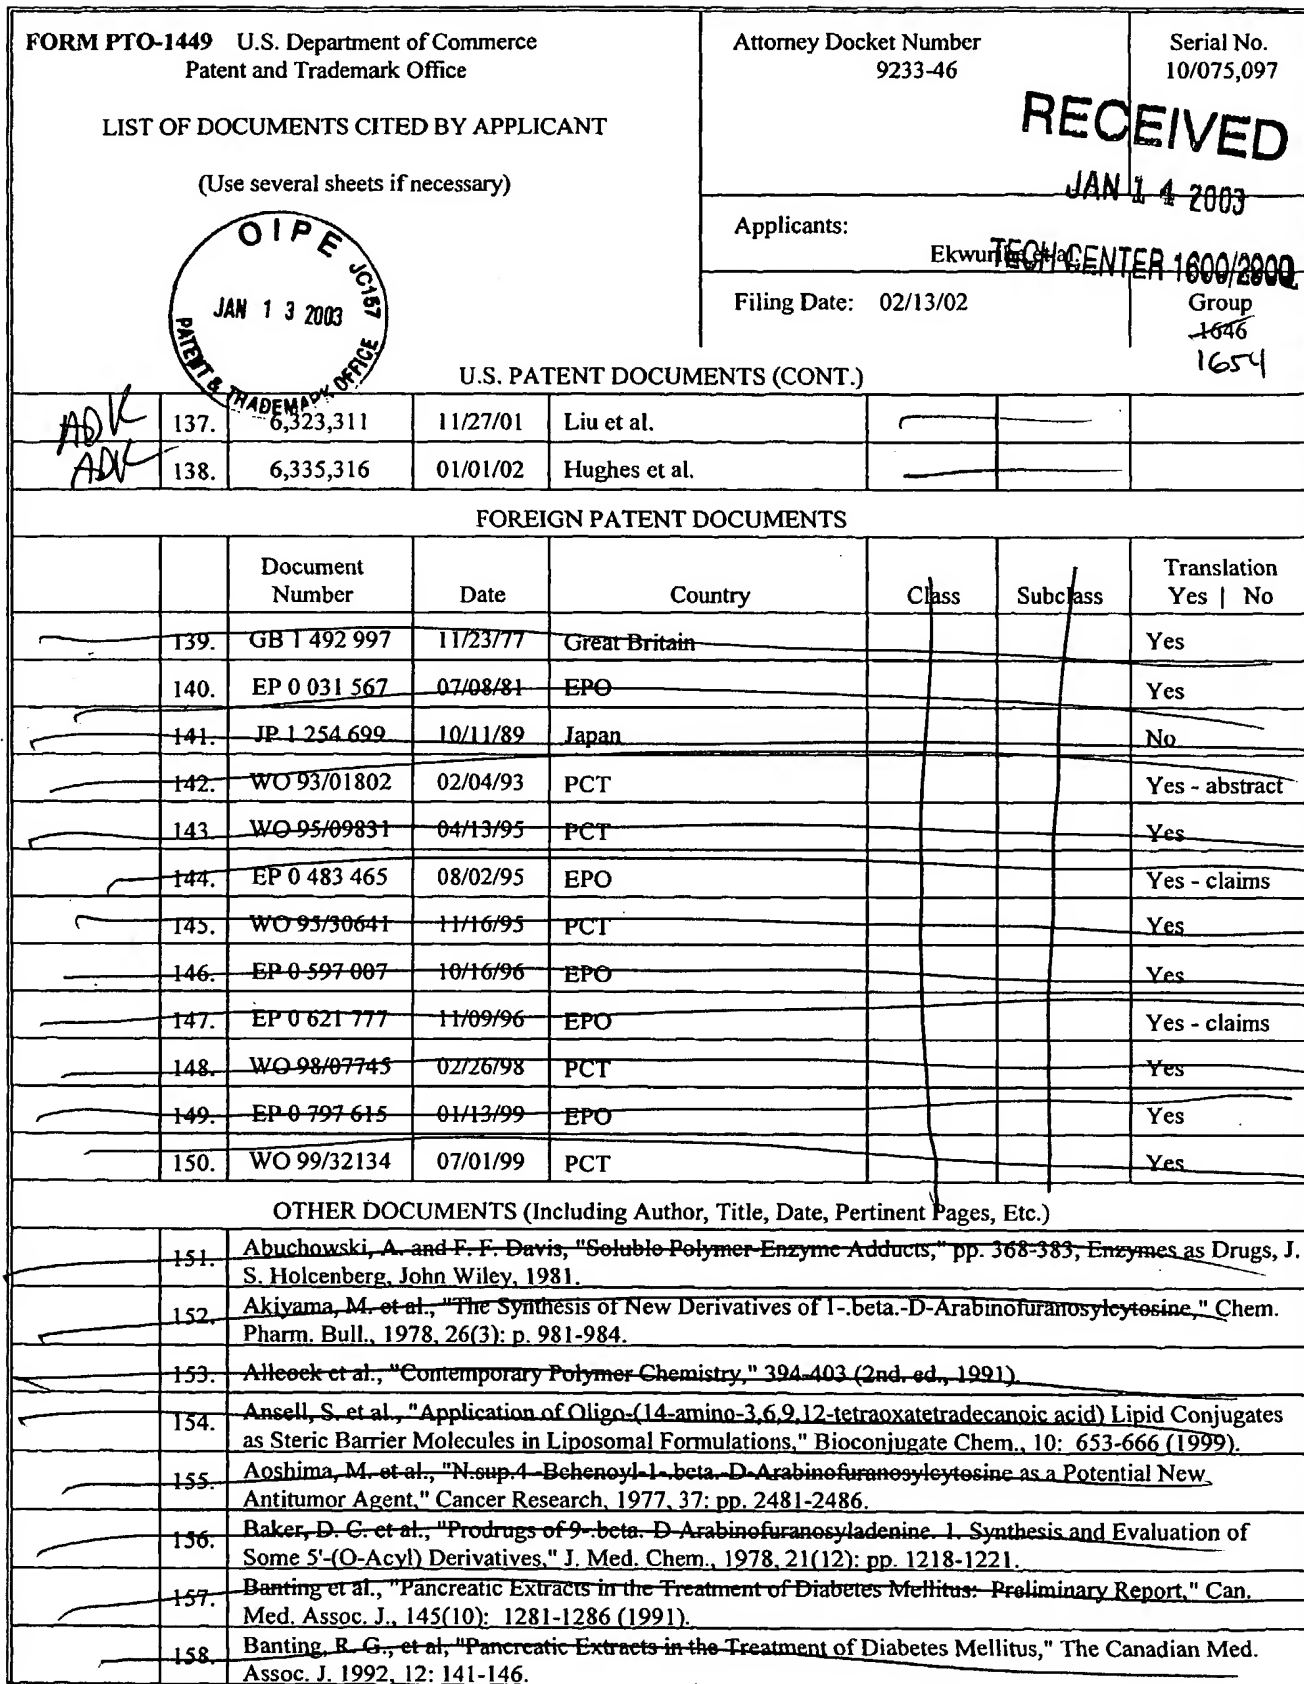 FORM PTO-1449 U.S. Department of Commerce
Patent and Trademark Office
LIST OF DOCUMENTS CITED BY APPLICANT
(Use several sheets if necessary)
Attorney Docket Number
9233-46
Serial No.
10/075,097
RECEIVED
JAN 14 2003
TECH CENTER 1600/2900
Applicants:
Filing Date: 02/13/02
Group
1646
1654
OIPE JC157
JAN 13 2003
PATENT & TRADEMARK OFFICE
U.S. PATENT DOCUMENTS (CONT.)
ADK 137. 6,323,311 11/27/01 Liu et al.
ADK 138. 6,335,316 01/01/02 Hughes et al.
FOREIGN PATENT DOCUMENTS
Document Number Date Country Class Subclass Translation Yes | No
139. GB 1 492 997 11/23/77 Great Britain Yes
140. EP 0 031 567 07/08/81 EPO Yes
141. JP 1 254 699 10/11/89 Japan No
142. WO 93/01802 02/04/93 PCT Yes - abstract
143. WO 95/09831 04/13/95 PCT Yes
144. EP 0 483 465 08/02/95 EPO Yes - claims
145. WO 95/30641 11/16/95 PCT Yes
146. EP 0 597 007 10/16/96 EPO Yes
147. EP 0 621 777 11/09/96 EPO Yes - claims
148. WO 98/07745 02/26/98 PCT Yes
149. EP 0 797 615 01/13/99 EPO Yes
150. WO 99/32134 07/01/99 PCT Yes
OTHER DOCUMENTS (Including Author, Title, Date, Pertinent Pages, Etc.)
151. Abuchowski, A. and F. F. Davis, "Soluble Polymer-Enzyme Adducts," pp. 368-383, Enzymes as Drugs, J.
S. Holcenberg, John Wiley, 1981.
152. Akiyama, M. et al., "The Synthesis of New Derivatives of 1-.beta.-D-Arabinofuranosylcytosine," Chem.
Pharm. Bull., 1978, 26(3): p. 981-984.
153. Allcock et al., "Contemporary Polymer Chemistry," 394-403 (2nd. ed., 1991).
154. Ansell, S. et al., "Application of Oligo-(14-amino-3,6,9,12-tetraoxatetradecanoic acid) Lipid Conjugates
as Steric Barrier Molecules in Liposomal Formulations," Bioconjugate Chem., 10: 653-666 (1999).
155. Aoshima, M. et al., "N.sup.4 -Behenoyl-1-.beta.-D-Arabinofuranosylcytosine as a Potential New
Antitumor Agent," Cancer Research, 1977, 37: pp. 2481-2486.
156. Baker, D. C. et al., "Prodrugs of 9-.beta.-D-Arabinofuranosyladenine. 1. Synthesis and Evaluation of
Some 5'-(O-Acyl) Derivatives," J. Med. Chem., 1978, 21(12): pp. 1218-1221.
157. Banting et al., "Pancreatic Extracts in the Treatment of Diabetes Mellitus: Preliminary Report," Can.
Med. Assoc. J., 145(10): 1281-1286 (1991).
158. Banting, R. G., et al, "Pancreatic Extracts in the Treatment of Diabetes Mellitus," The Canadian Med.
Assoc. J. 1992, 12: 141-146.